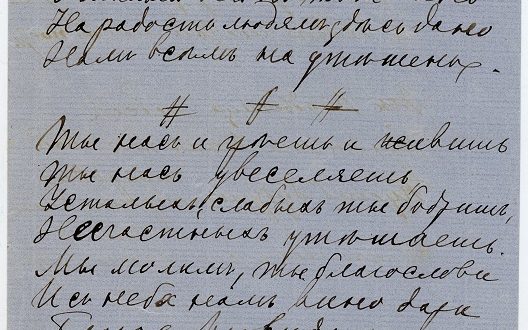 На радость людямъ здѣсь дано
Намъ всѣмъ на утѣшенье.
# # #
Ты насъ и поишь и живишь
Ты насъ увеселяешь
Усталыхъ, слабыхъ ты бодришь,
Несчастныхъ утѣшаешь.
Мы молимъ, ты благослови
И съ неба намъ вино дари